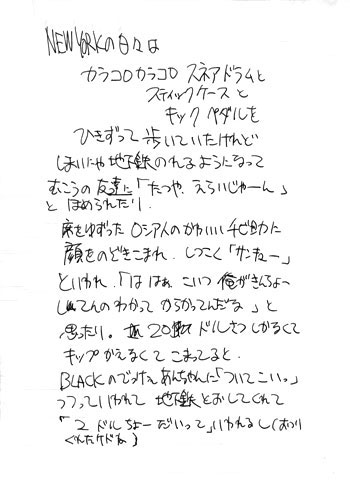 NEW YORKの日々は
カラコロカラコロ スネアドラムと
スティックケースと
キック ペダルを
ひきずって 歩いていたけれど
しまいにゃ地下鉄のれるようになって
むこうの友達に「たつや、えらいじゃーん」
と ほめられたり.
席をゆずった ロシア人のかわいいチビ助に
顔をのぞきこまれ. しつこく「サンキュー」
といわれ.「ははぁ こいつ 俺がきんちょー
してんの わかって からかってんだな」と
思ったり。 20 ドルさつ しかなくて
キップ かえなくて こまってると.
BLACKのでっけぇ あんちゃんに「ついてこいっ」
っつっていわれて 地下鉄 とおしてくれて
「2 ドル ちょーだいって」いわれるし(おつり
くれたケドね)